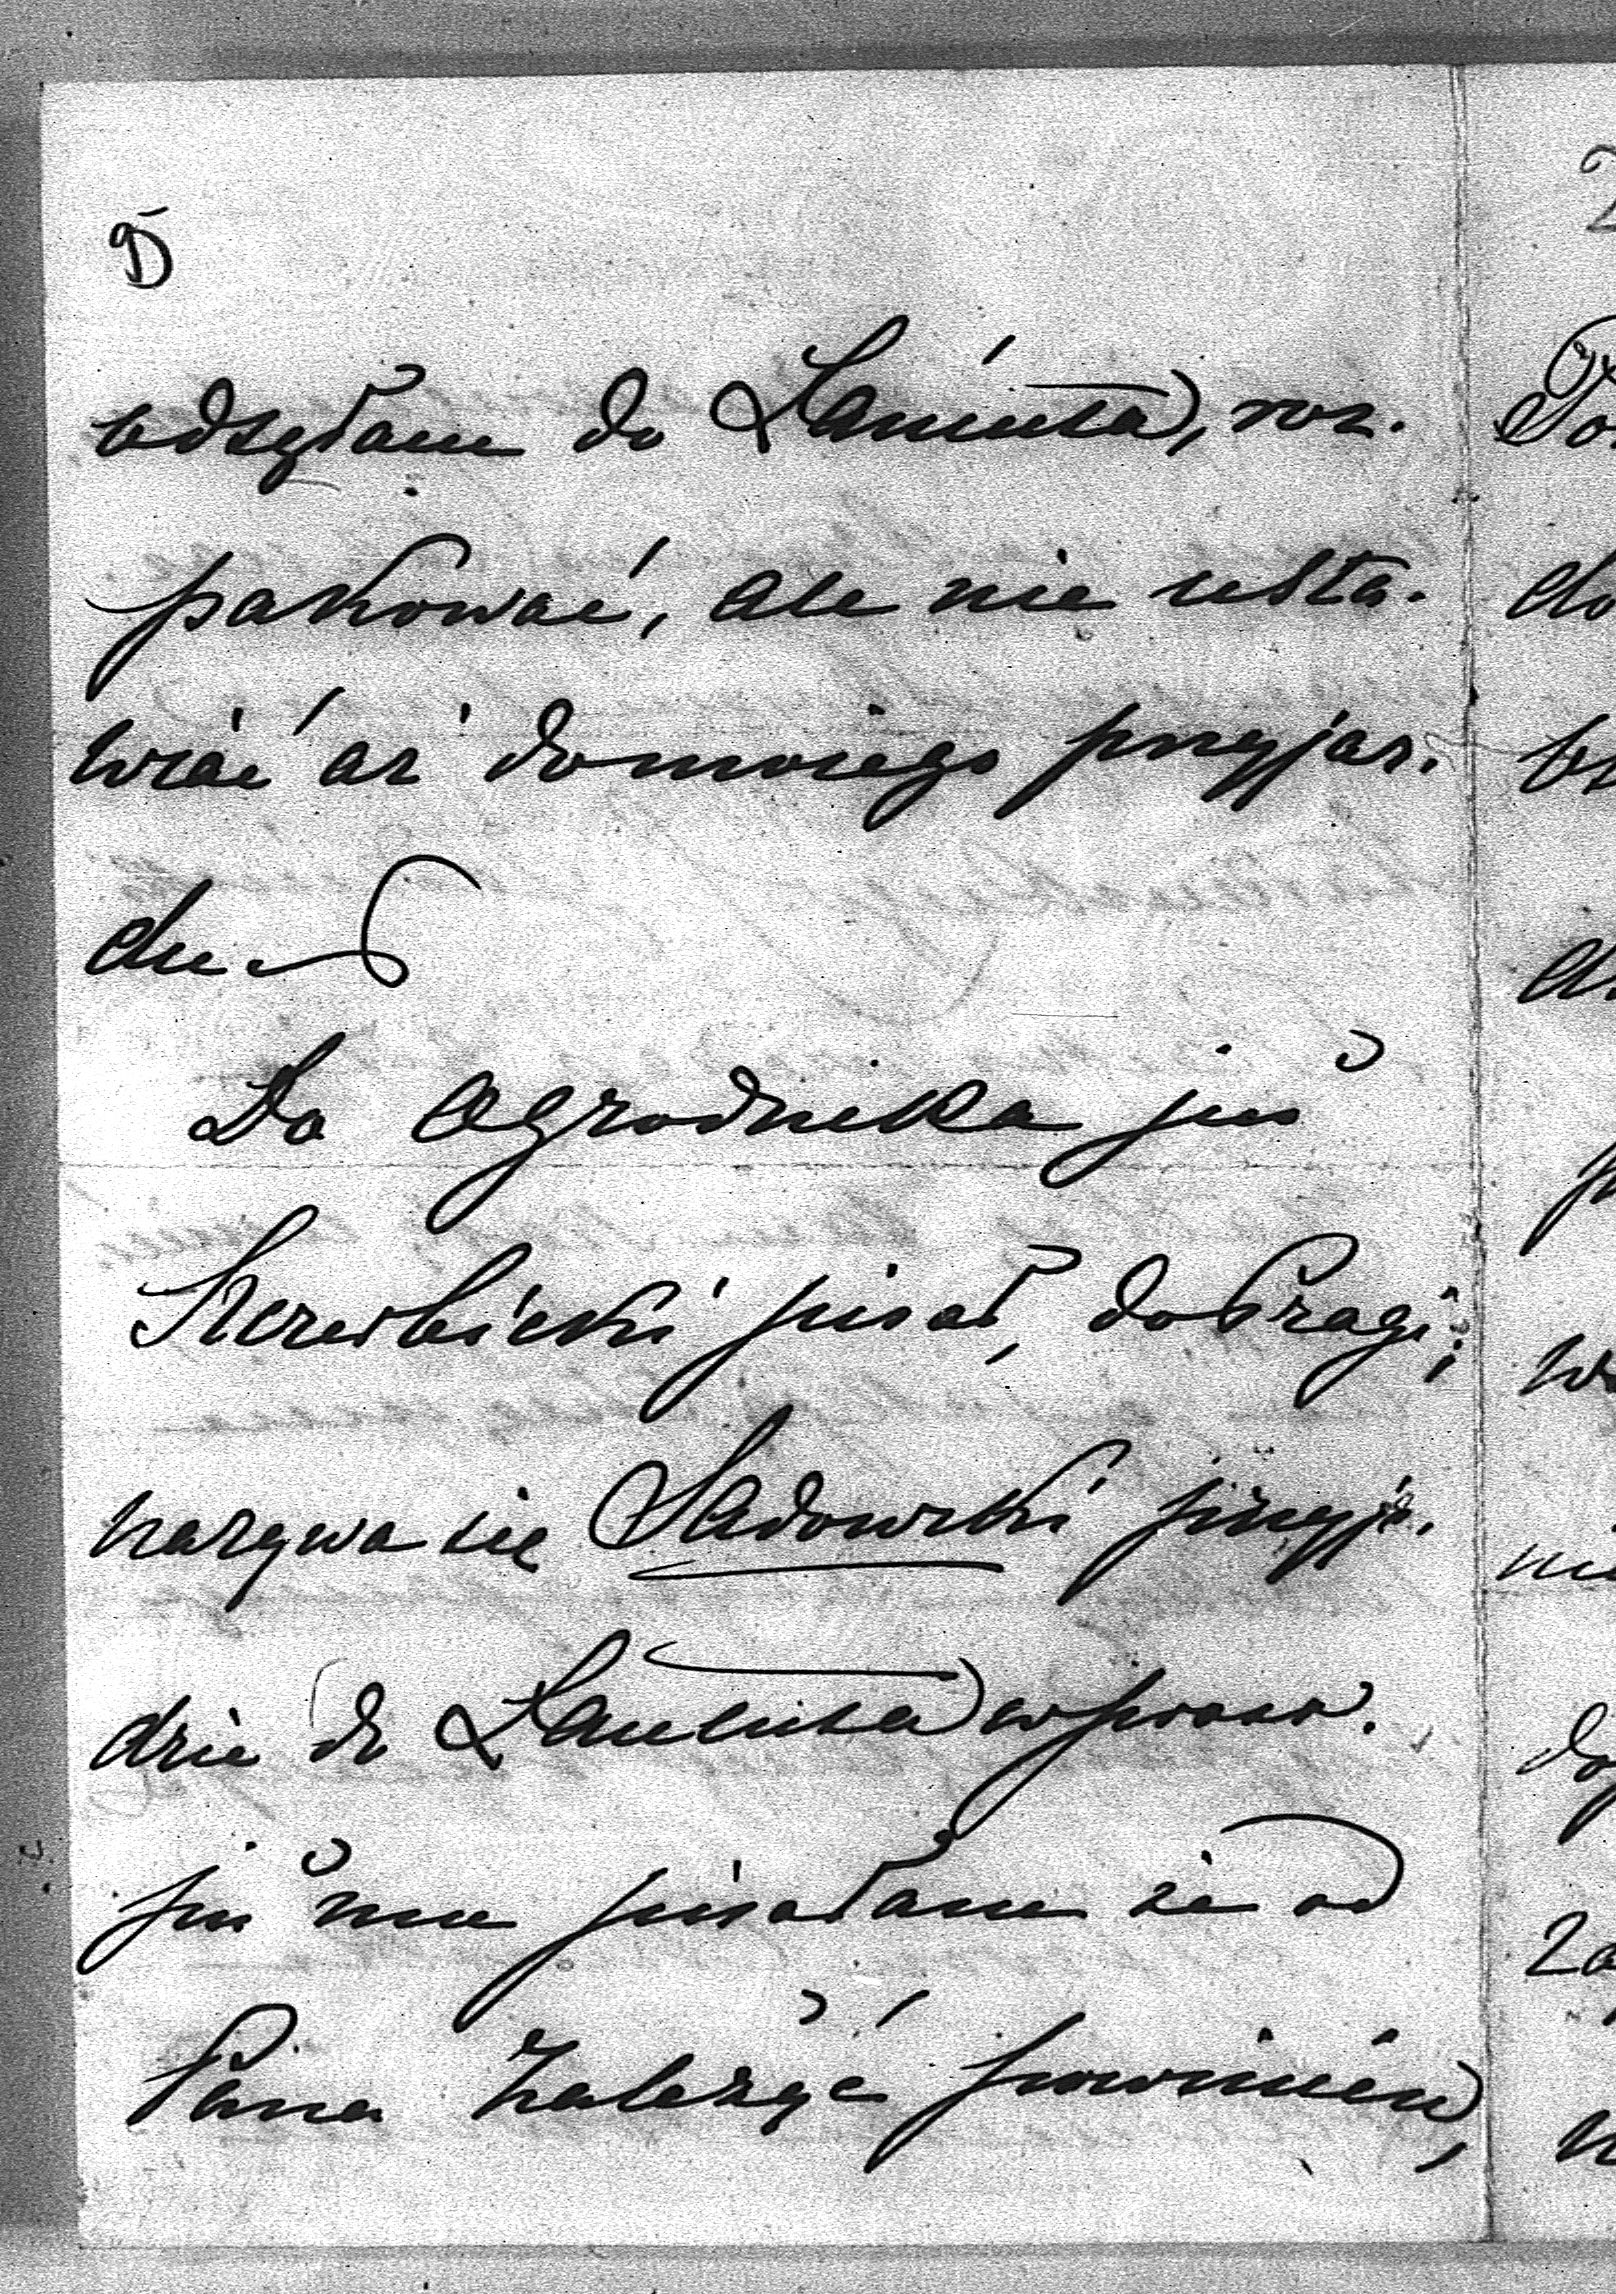 5
odsyłam do Łańcuta, roz.
pakować, ale nie usta.
wiać aż do mojego przyjaz.
du
Do Ogrodnika już
Szczerbicki pisał, do Pragi;
nazywa się Sadowski przyje.
dzie do Łańcuta w
już mu pisałam że od
Pana zależyć powinien,